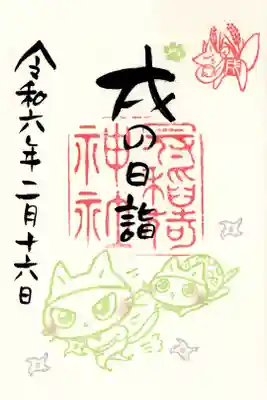 戌の日詣
冠稲荷
神社
令和六年二月十六日